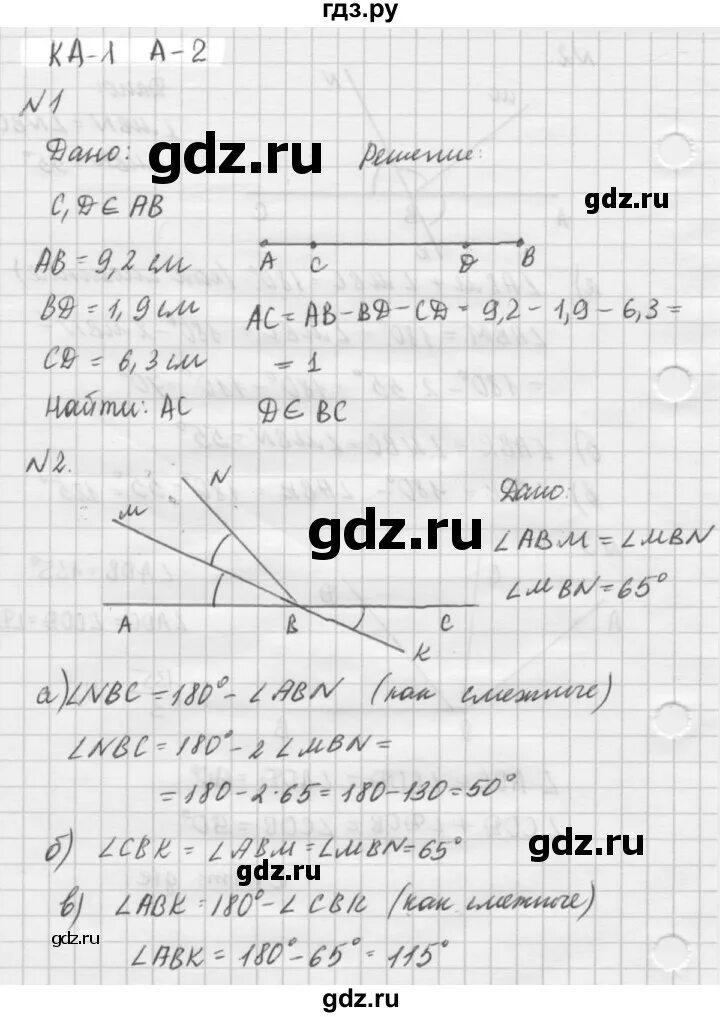 гдз.ру
КА-1 А-2
N1
Дано: gdz.ru Решение:
gdz.ru
C, D ∈ AB
A C D B
AB = 9,2 см
BD = 1,9 см AC = AB - BD - CD = 9,2 - 1,9 - 6,3 =
CD = 6,3 см = 1
Найти: AC D ∈ BC
N2.
N
M
Дано:
gdz.ru
∠ABM = ∠MBN
∠MBN = 65°
A B C
K
а) ∠NBC = 180° - ∠ABN (как смежные)
∠NBC = 180° - 2∠MBN =
= 180 - 2·65 = 180 - 130 = 50°
б) ∠CBK = ∠ABM = ∠MBN = 65°
gdz.ru
gdz.ru
в) ∠ABK = 180° - ∠CBK (как смежные)
gdz.ru
∠ABK = 180° - 65° = 115°
gdz.ru